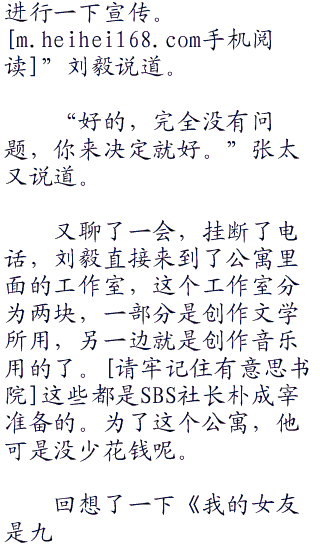 进行一下宣传。
[m.heihei168.com手机阅
读]”刘毅说道。
“好的，完全没有问
题，你来决定就好。”张太
又说道。
又聊了一会，挂断了电
话，刘毅直接来到了公寓里
面的工作室，这个工作室分
为两块，一部分是创作文学
所用，另一边就是创作音乐
用的了。[请牢记住有意思书
院]这些都是SBS社长朴成宰
准备的。为了这个公寓，他
可是没少花钱呢。
回想了一下《我的女友
是九